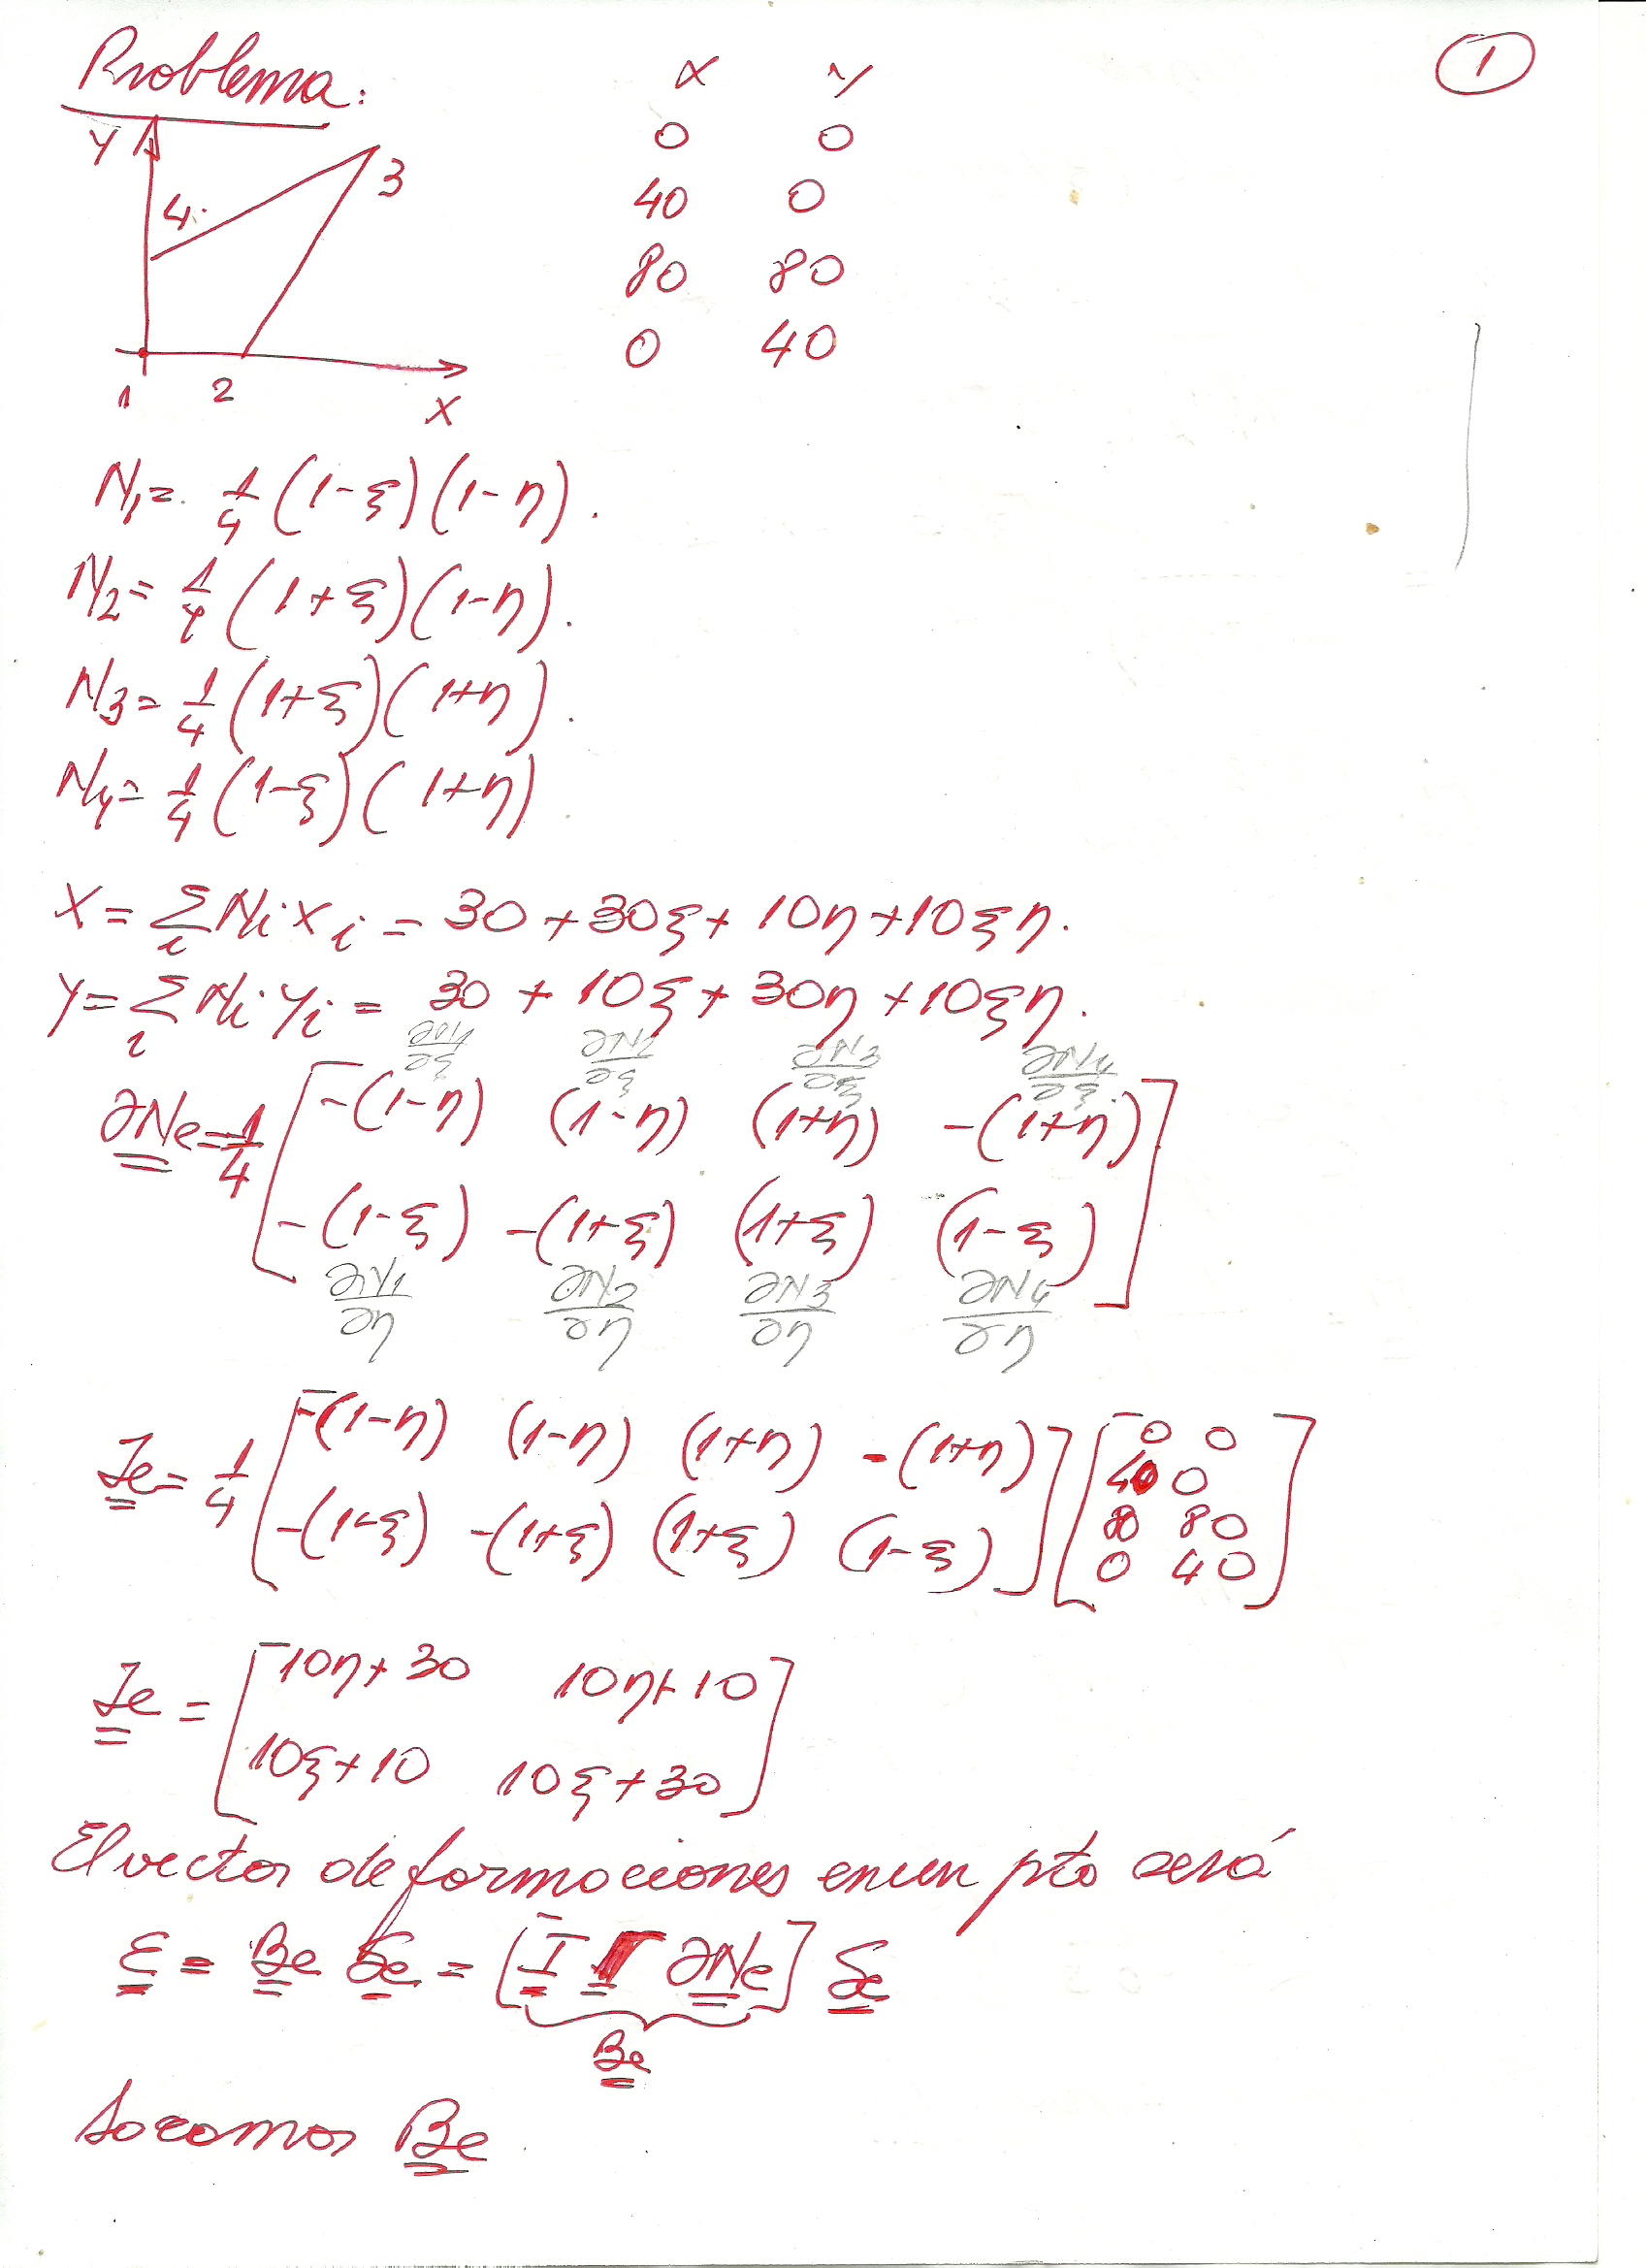 Problema:
①
Y
4
3
1
2
X
x y
0 0
40 0
80 80
0 40
N₁ = 1/4 (1-ξ)(1-η).
N₂ = 1/4 (1+ξ)(1-η).
N₃ = 1/4 (1+ξ)(1+η).
N₄ = 1/4 (1-ξ)(1+η)
X = Σᵢ Nᵢ xᵢ = 30 + 30ξ + 10η + 10ξη.
Y = Σᵢ Nᵢ yᵢ = 30 + 10ξ + 30η + 10ξη.
∂N₁/∂ξ ∂N₂/∂ξ ∂N₃/∂ξ ∂N₄/∂ξ
∂Ne = 1/4 [ -(1-η) (1-η) (1+η) -(1+η)
-(1-ξ) -(1+ξ) (1+ξ) (1-ξ) ]
∂N₁/∂η ∂N₂/∂η ∂N₃/∂η ∂N₄/∂η
Je = 1/4 [ -(1-η) (1-η) (1+η) -(1+η)
-(1-ξ) -(1+ξ) (1+ξ) (1-ξ) ] [ 0 0
40 0
80 80
0 40 ]
Je = [ 10η+30 10η+10
10ξ+10 10ξ+30 ]
El vector deformaciones en un pto será
ε = Be δe = [ I Γ ∂Ne ] δe
Be
Sacamos Be